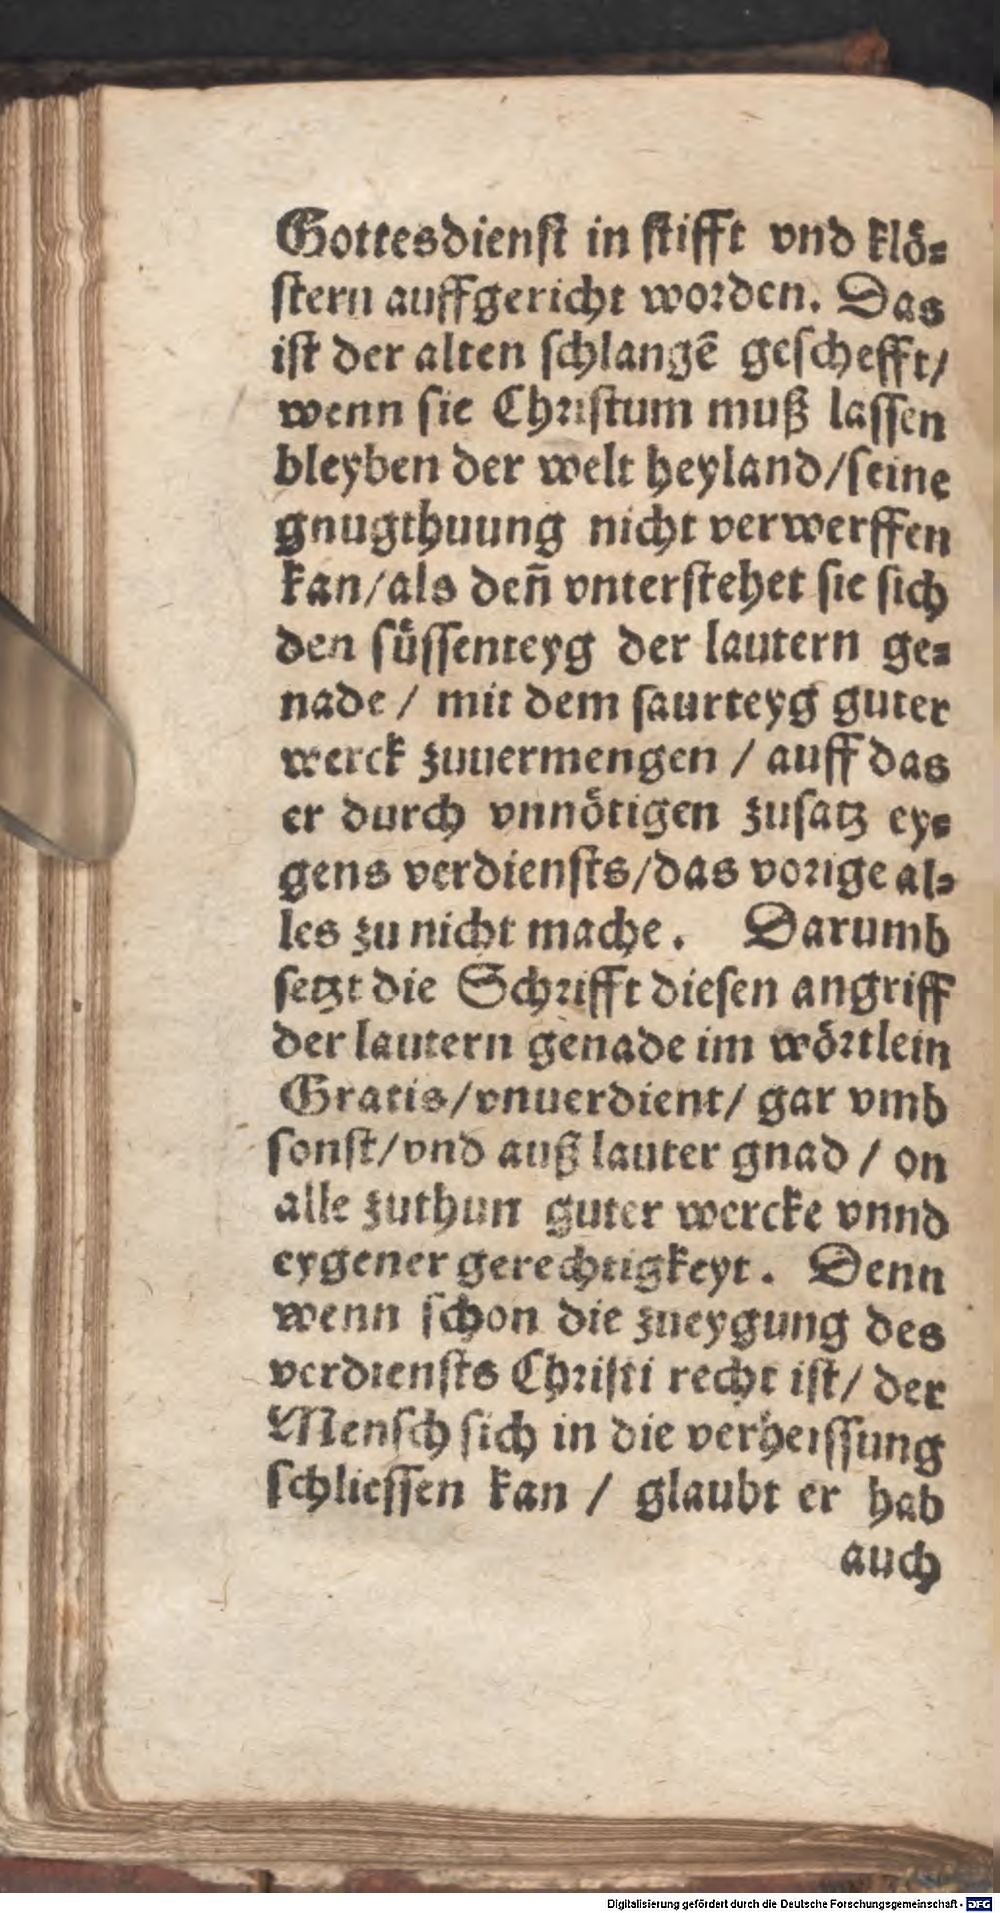 Gottesdienſt in ſtifft vnd klö⸗
ſtern auffgericht worden. Das
iſt der alten ſchlangē geſchefft/
wenn ſie Chriſtum muß laſſen
bleyben der welt heyland/ſeine
gnugthuung nicht verwerffen
kan/als deñ vnterſtehet ſie ſich
den ſüſſenteyg der lautern ge⸗
nade / mit dem ſaurteyg guter
werck zuuermengen / auff das
er durch vnnötigen zuſatz ey⸗
gens verdienſts/das vorige al⸗
les zu nicht mache. Darumb
ſetzt die Schrifft dieſen angriff
der lautern genade im wörtlein
Gratis/vnuerdient/ gar vmb
ſonſt/vnd auß lauter gnad / on
alle zuthun guter wercke vnnd
eygener gerechtigkeyt. Denn
wenn ſchon die zueygung des
verdienſts Chriſti recht iſt/ der
Menſch ſich in die verheiſſung
ſchlieſſen kan / glaubt er hab
auch
Digitalisierung gefördert durch die Deutsche Forschungsgemeinschaft - DFG